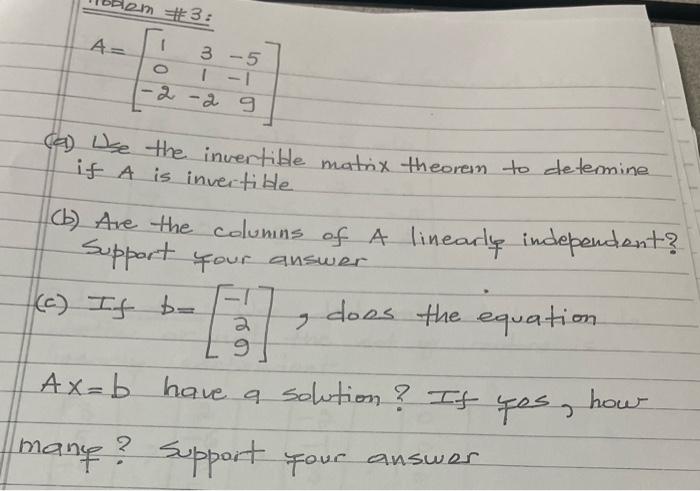 Problem #3:
A= [ 1 3 -5
0 1 -1
-2 -2 9 ]
(a) Use the invertible matrix theorem to determine
if A is invertible
(b) Are the columns of A linearly independent?
Support your answer
(c) If b= [ -1
2
9 ] , does the equation
Ax=b have a solution? If yes, how
many? Support your answer